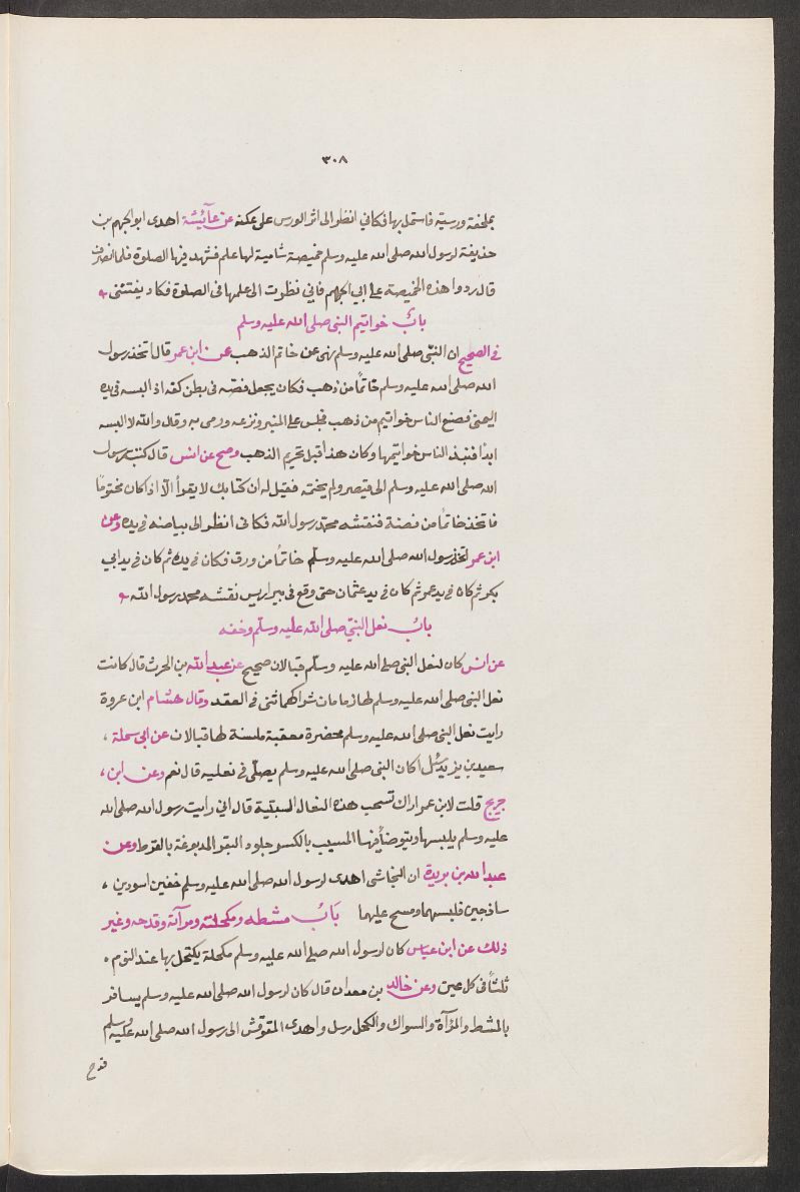 ٣٠٨
بملحفة ورسية فاشتمل بها فكاني انظر الى اثر الورس على عكنه عن عآئشة اهدى ابو الجهم بن
حذيفة لرسول الله صلى الله عليه وسلم خميصة شامية لها علم فشهد فيها الصلوة فلما انصرف
قال ردوا هذه الخميصة على ابي الجهم فاني نظرت الى علمها في الصلوة فكاد يفتنني
باب خواتيم النبي صلى الله عليه وسلم
في الصحيح ان النبي صلى الله عليه وسلم نهى عن خاتم الذهب عن ابن عمر قال اتخذ رسول
الله صلى الله عليه وسلم خاتماً من ذهب فكان يجعل فصه في بطن كفه اذا لبسه في يده
اليمنى فصنع الناس خواتيم من ذهب فجلس على المنبر ونزعه ورمى به وقال والله لا البسه
ابداً فنبذ الناس خواتيمها وكان هذا قبل تحريم الذهب وصح عن انس قال كتب رسول
الله صلى الله عليه وسلم الى قيصر ولم يختمه فقيل له ان كتابك لا يقرأ الا اذا كان مختوماً
فاتخذ خاتماً من فضة فنقشه محمد رسول الله فكاني انظر الى بياضه في يده وعن
ابن عمر اتخذ رسول الله صلى الله عليه وسلم خاتماً من ورق فكان في يده ثم كان في يد ابي
بكر ثم كان في يد عمر ثم كان في يد عثمان حتى وقع في بير اريس نقشه محمد رسول الله
باب نعل النبي صلى الله عليه وسلم وخفه
عن انس كان لنعل النبي صلى الله عليه وسلم قبالان صحيح عن عبد الله بن الحرث قال كانت
نعل النبي صلى الله عليه وسلم لها زمامان شراكهما ثنى في العقد وقال هشام ابن عروة
رايت نعل النبي صلى الله عليه وسلم مخصرة معقبة ملسنة لها قبالان عن ابي سحلة
سعيد بن يزيد سئل اكان النبي صلى الله عليه وسلم يصلى في نعليه قال نعم وعن ابن
جريج قلت لابن عمر اراك تستحب هذه النعال السبتية قال اني رايت رسول الله صلى الله
عليه وسلم يلبسها ويتوضأ فيها المسيب بالكسر جلود البقر المدبوغة بالقرط وعن
عبد الله بن بريدة ان النجاشى اهدى لرسول الله صلى الله عليه وسلم خفين اسودين
ساذجين فلبسهما ومسح عليهما باب مشطه ومكحلته ومرآته وقدحه وغير
ذلك عن ابن عباس كان لرسول الله صلى الله عليه وسلم مكحلة يكتحل بها عند النوم
ثلثاً في كل عين وعن خالد بن معدان قال كان لرسول الله صلى الله عليه وسلم يسافر
بالمشط والمرآة والسواك والكحل مرسل واهدى المقوقش الى رسول الله صلى الله عليه وسلم
قدح